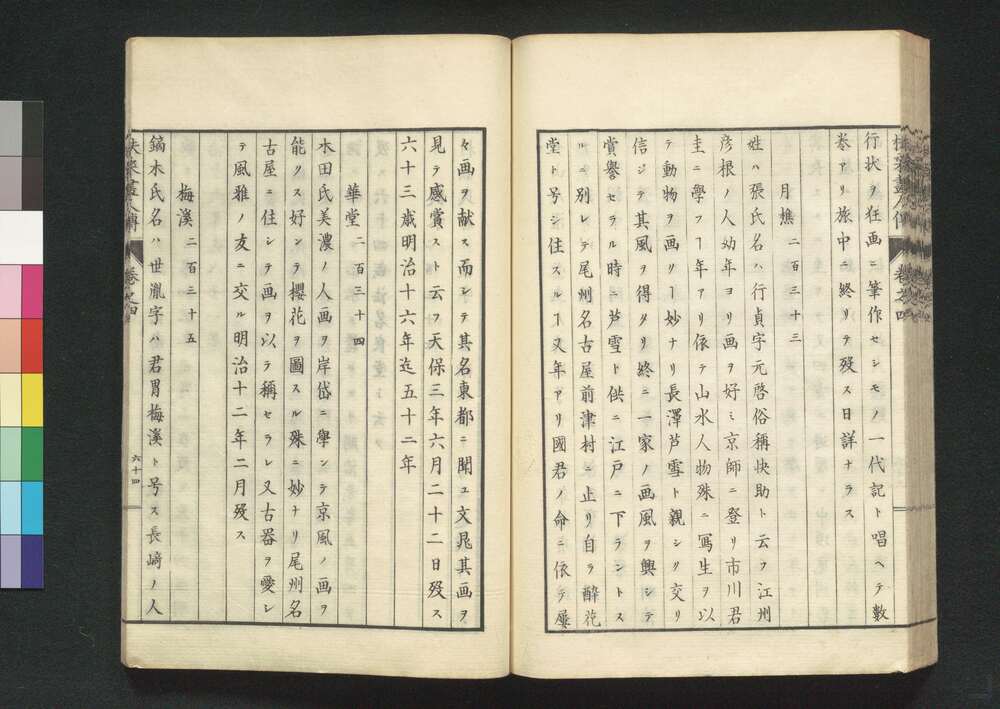 行状ヲ狂画ニ筆作セシモノ一代記ト唱ヘテ數
巻アリ旅中ニ終リテ歿ス日詳ナラス
月樵 二百三十三
姓ハ張氏名ハ行貞字元啓俗稱快助ト云フ江州
彦根ノ人幼年ヨリ画ヲ好ミ京師ニ登リ市川君
圭ニ學フヿ年アリ依テ山水人物殊ニ寫生ヲ以
テ動物ヲ画リヿ妙ナリ長澤芦雪ト親シリ交リ
信ジテ其風ヲ得タリ終ニ一家ノ画風ヲ興シテ
賞譽セラル時ニ芦雪ト供ニ江戸ニ下ラントス
ルニ別レテ尾州名古屋前津村ニ止リ自ラ酔花
堂ト号シ住スルヿ又年アリ國君ノ命ニ依テ屡
々画ヲ献ス而シテ其名東都ニ聞ユ文晁其画ヲ
見テ感賞スト云フ天保三年六月二十二日歿ス
六十三歳明治十六年迄五十二年
華堂 二百三十四
本田氏美濃ノ人画ヲ岸岱ニ學ンテ京風ノ画ヲ
能クス好ンテ櫻花ヲ圖スル殊ニ妙ナリ尾州名
古屋ニ住シテ画ヲ以テ稱セラレ又古器ヲ愛シ
テ風雅ノ友ニ交ル明治十二年二月歿ス
梅溪 二百三十五
鏑木氏名ハ世胤字ハ君胃梅溪ト号ス長崎ノ人
巻之四
六十四